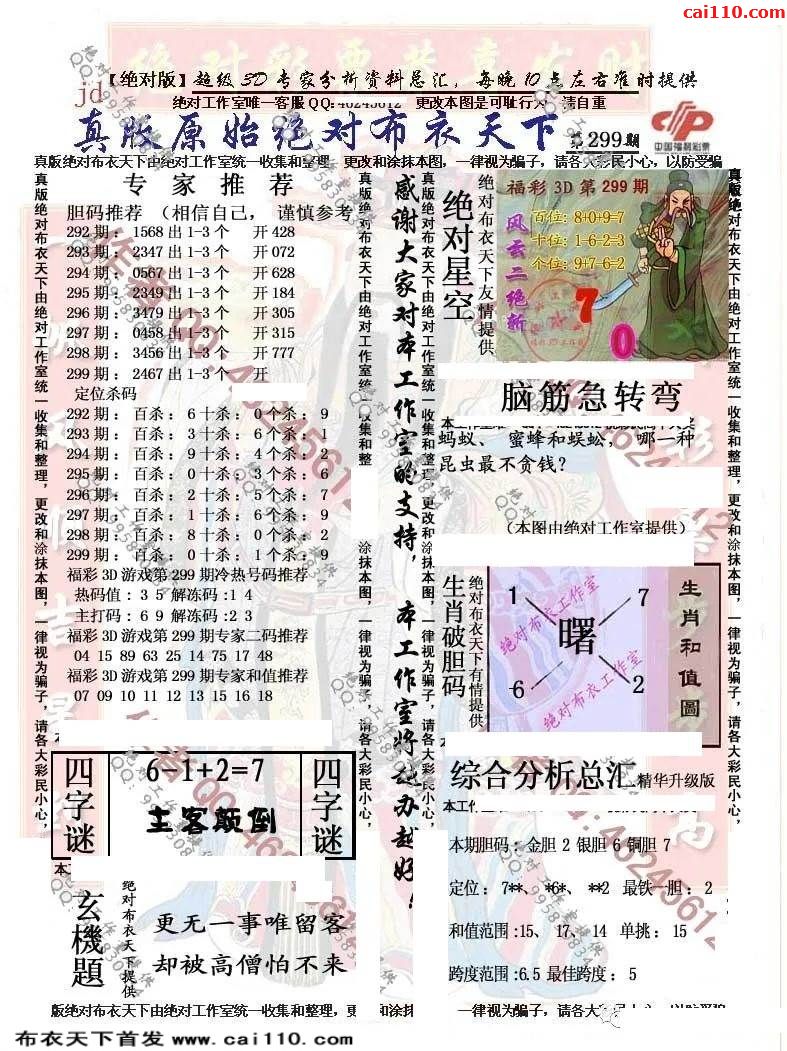 cai110.com
【绝对版】超级3D专家分析资料总汇，每晚10点左右准时提供
jd
绝对工作室唯一客服QQ:46245612 更改本图是可耻行为 请自重
真版原始绝对布衣天下 第299期
中国福利彩票
真版绝对布衣天下由绝对工作室统一收集和整理，更改和涂抹本图，一律视为骗子，请各大彩民小心，以防受骗
专家推荐
胆码推荐 （相信自己， 谨慎参考
292期： 1568出1-3个 开428
293期： 2347出1-3个 开072
294期： 0567出1-3个 开628
295期： 2349出1-3个 开184
296期： 3479出1-3个 开305
297期： 0458出1-3个 开315
298期： 3456出1-3个 开777
299期： 2467出1-3个 开
定位杀码
292期： 百杀： 6十杀： 0个杀： 9
293期： 百杀： 3十杀： 6个杀： 1
294期： 百杀： 9十杀： 4个杀： 2
295期： 百杀： 0十杀： 3个杀： 6
296期： 百杀： 2十杀： 5个杀： 7
297期： 百杀： 1十杀： 6个杀： 9
298期： 百杀： 8十杀： 0个杀： 2
299期： 百杀： 0十杀： 1个杀： 9
福彩3D游戏第299期冷热号码推荐
热码值：35解冻码:14
主打码：69解冻码:23
福彩3D游戏第299期专家二码推荐
04 15 89 63 25 14 75 17 48
福彩3D游戏第299期专家和值推荐
07 09 10 11 12 13 15 16 18
真版绝对布衣天下由绝对工作室统一收集和整理，更改和涂抹本图，一律视为骗子，请各大彩民小心，
感谢大家对本工作室的支持，本工作室将越办越好！
绝对星空
绝对布衣天下友情提供
福彩3D第299期
风云二绝斩
百位: 8+0+9=7
十位: 1-6-2=3
个位: 9+7-6=2
7
0
脑筋急转弯
蚂蚁、蜜蜂和蜈蚣，哪一种
昆虫最不贪钱？
（本图由绝对工作室提供）
生肖破胆码
绝对布衣天下有情提供
1 7
曙
6 2
绝对布衣工作室
绝对布衣工作室
生肖和值圖
四字谜
6-1+2=7
主客颠倒
四字谜
综合分析总汇 精华升级版
本期胆码：金胆 2 银胆 6 铜胆 7
定位： 7**、 *6*、 **2 最铁一胆： 2
和值范围:15、 17、 14 单挑： 15
跨度范围:6.5 最佳跨度： 5
玄機題
绝对布衣天下提供
更无一事唯留客
却被高僧怕不来
版绝对布衣天下由绝对工作室统一收集和整理，更
和涂抹
一律视为骗子，请各大
布衣天下首发 www.cai110.com